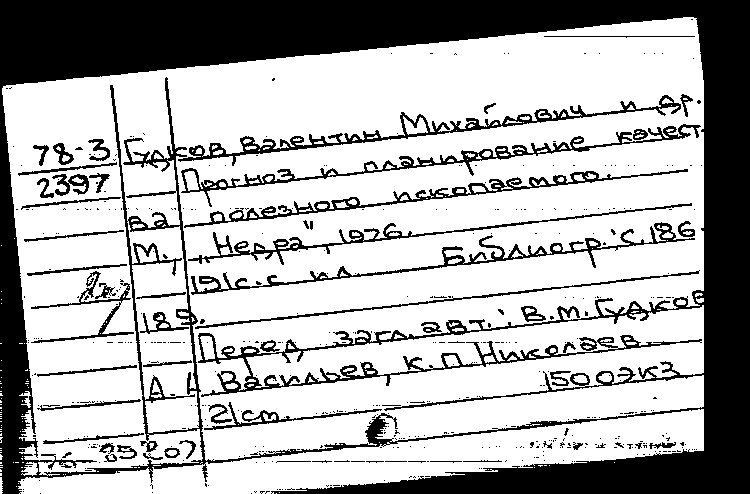 78-3 Гудков, Валентин Михайлович и др.
2397 Прогноз и планирование качест-
ва полезного ископаемого.
М., „Недра", 1976.
191с. с ил. Библиогр.: с. 186-
189.
Перед загл. авт.: В.М. Гудков
А. А. Васильев, К.П. Николаев.
1500экз
21cm.
76-35207